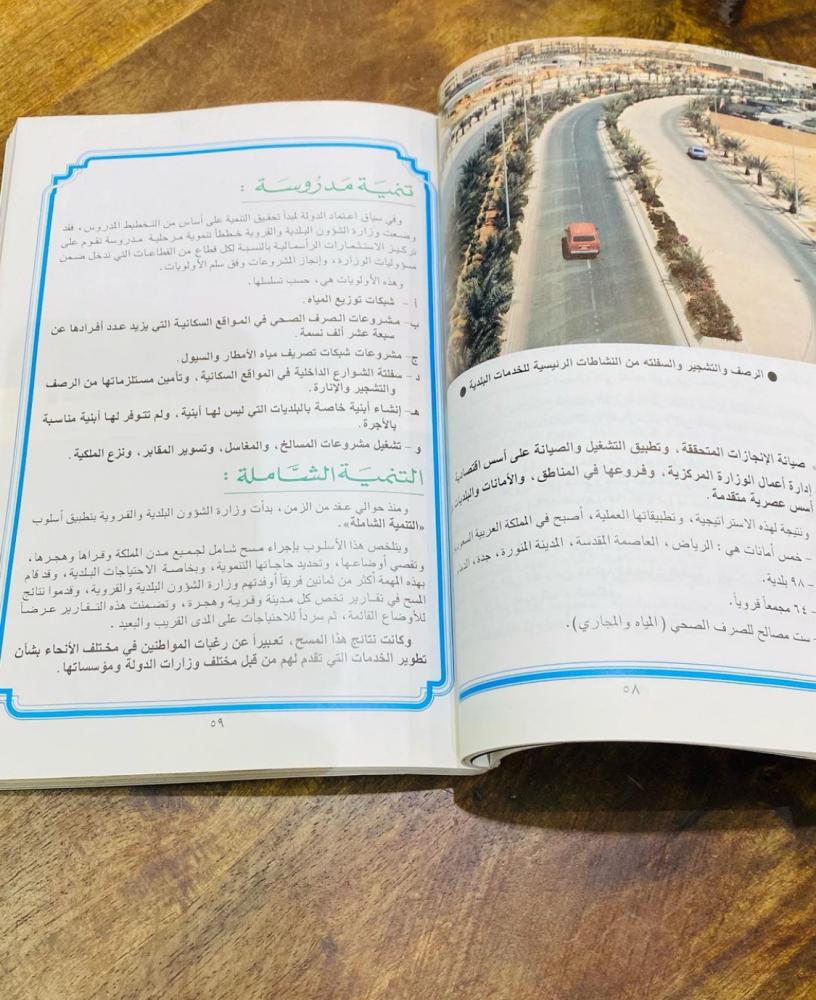 ● الرصف والتشجير والسفلته من النشاطات الرئيسية للخدمات البلدية ●
صيانة الإنجازات المتحققة ، وتطبيق التشغيل والصيانة على أسس اقتصادية
إدارة أعمال الوزارة المركزية ، وفروعها في المناطق ، والأمانات والبلديات
أسس عصرية متقدمة .
ونتيجة لهذه الاستراتيجية ، وتطبيقاتها العملية ، أصبح في المملكة العربية السعودية
- خمس أمانات هي : الرياض ، العاصمة المقدسة ، المدينة المنورة ، جدة ،
- ٩٨ بلدية .
- ٦٤ مجمعاً قروياً .
- ست مصالح للصرف الصحي (المياه والمجاري) .
٥٨
تنمية مدروسة :
وفي سياق اعتماد الدولة لمبدأ تحقيق التنمية على أساس من التخطيط المدروس ، فقد
وضعت وزارة الشؤون البلدية والقروية خططاً تنموية مرحلية مدروسة تقوم على
تركيز الاستثمارات الرأسمالية بالنسبة لكل قطاع من القطاعات التي تدخل ضمن
مسؤوليات الوزارة ، وإنجاز المشروعات وفق سلم الأولويات .
وهذه الأولويات هي ، حسب تسلسلها .
أ - شبكات توزيع المياه .
ب- مشروعات الصرف الصحي في المواقع السكانية التي يزيد عدد أفرادها عن
سبعة عشر ألف نسمة .
ج- مشروعات شبكات تصريف مياه الأمطار والسيول .
د - سفلتة الشوارع الداخلية في المواقع السكانية ، وتأمين مستلزماتها من الرصف
والتشجير والإنارة .
هـ- إنشاء أبنية خاصة بالبلديات التي ليس لها أبنية ، ولم تتوفر لها أبنية مناسبة
بالأجرة .
و - تشغيل مشروعات المسالخ ، والمغاسل ، وتسوير المقابر ، ونزع الملكية .
التنمية الشاملة :
ومنذ حوالي عقد من الزمن ، بدأت وزارة الشؤون البلدية والقروية بتطبيق أسلوب
«التنمية الشاملة» .
ويتلخص هذا الأسلوب بإجراء مسح شامل لجميع مدن المملكة وقراها وهجرها ،
وتقصي أوضاعها ، وتحديد حاجاتها التنموية ، وبخاصة الاحتياجات البلدية ، وقد قام
بهذه المهمة أكثر من ثمانين فريقاً أوفدتهم وزارة الشؤون البلدية والقروية ، وقدموا نتائج
المسح في تقارير تخص كل مدينة وقرية وهجرة ، وتضمنت هذه التقارير عرضاً
للأوضاع القائمة ، ثم سرداً للاحتياجات على المدى القريب والبعيد .
وكانت نتائج هذا المسح ، تعبيراً عن رغبات المواطنين في مختلف الأنحاء بشأن
تطوير الخدمات التي تقدم لهم من قبل مختلف وزارات الدولة ومؤسساتها .
٥٩